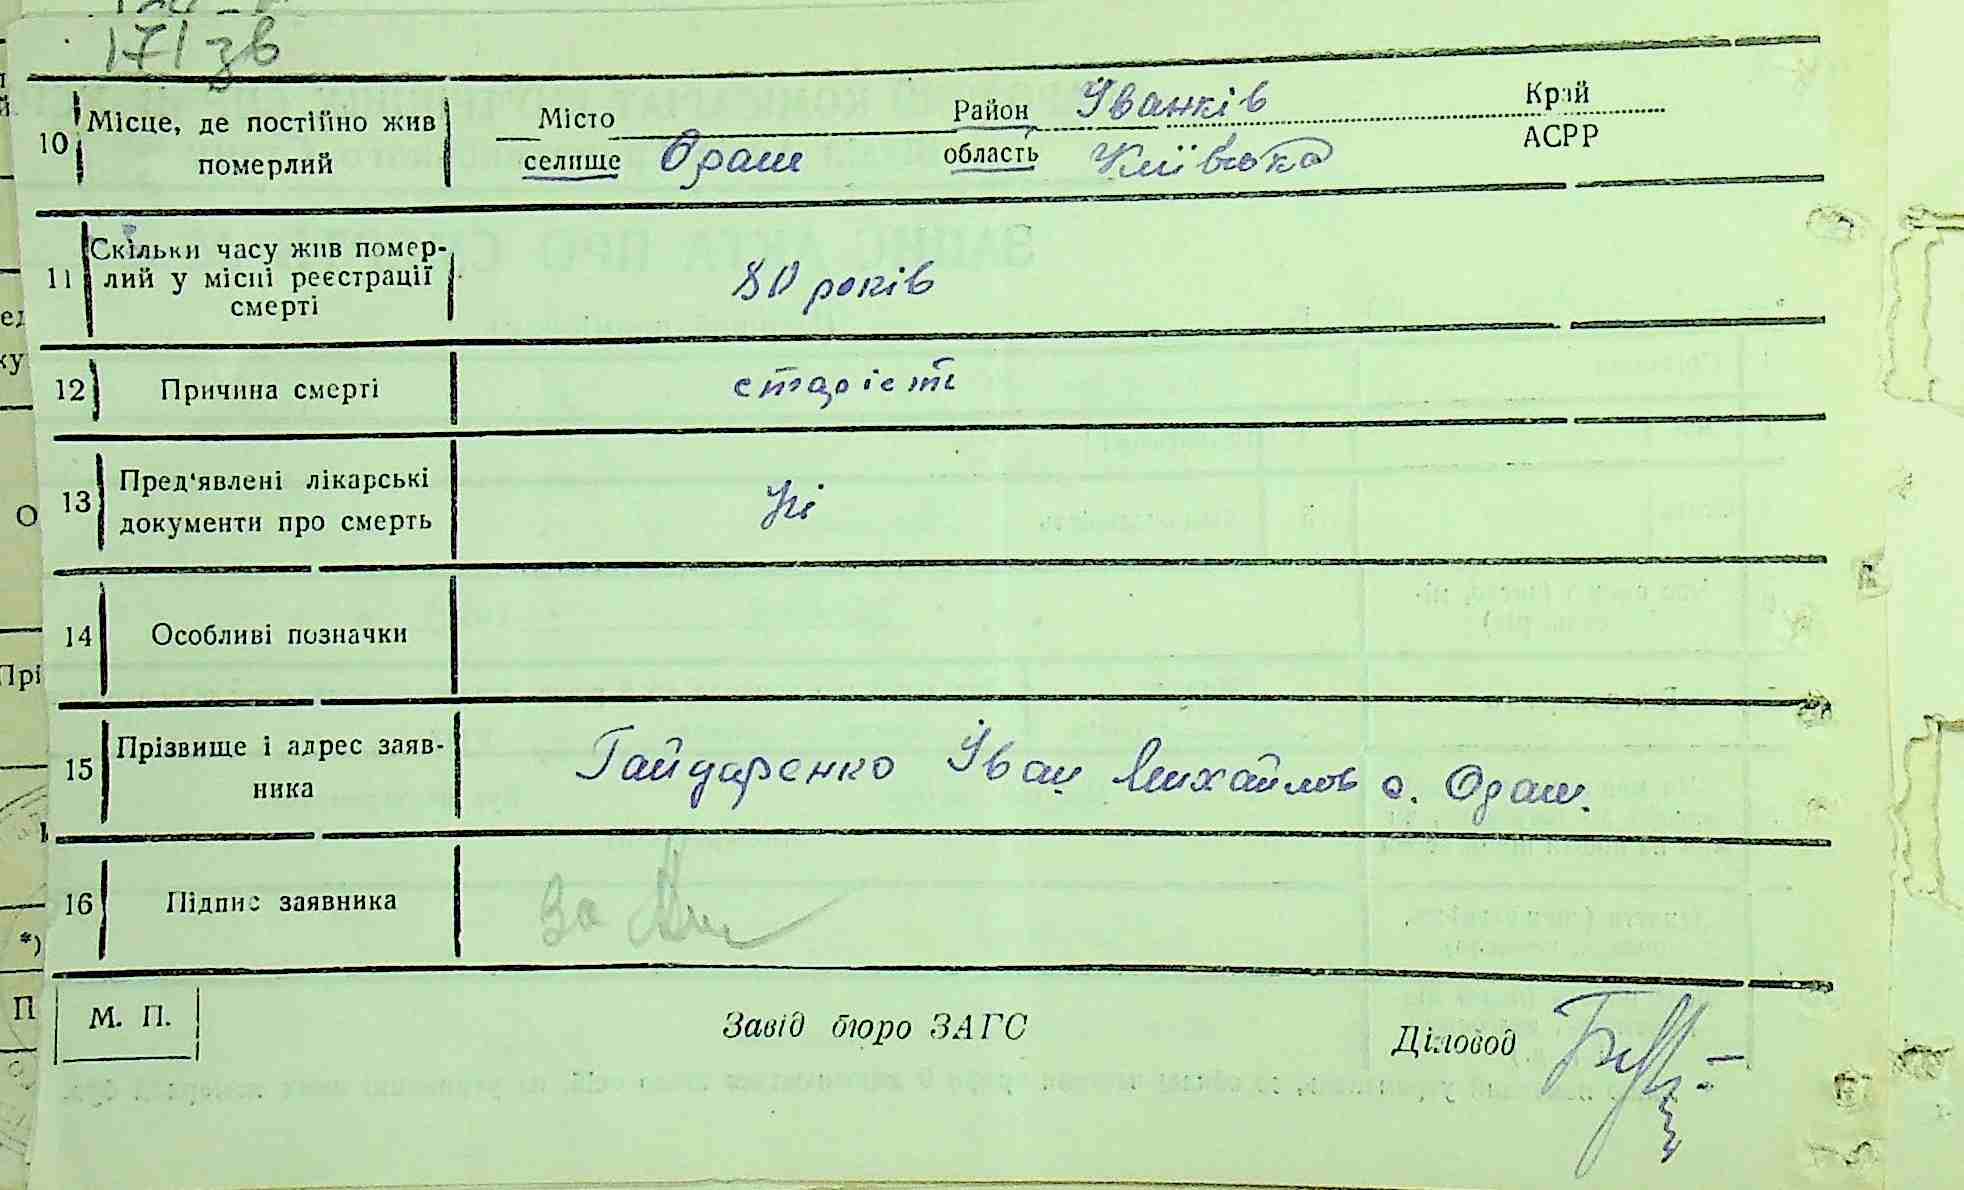 171 зв
10 Місце, де постійно жив померлий
Місто Район Іванків Край
селище Ораш область Київська АСРР
11 Скільки часу жив помер-
лий у місці реєстрації
смерті
80 років
12 Причина смерті старість
13 Пред'явлені лікарські
документи про смерть
Ні
14 Особливі позначки
15 Прізвище і адрес заяв-
ника
Гайдаренко Іван Михайлов с. Ораш.
16 Підпис заявника За
М. П. Завід бюро ЗАГС Діловод